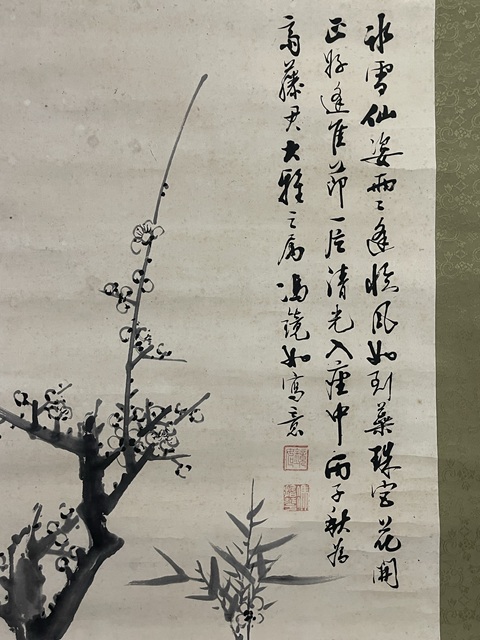 冰雪仙姿兩々逢臨風如到蕊珠宮花開
正好逢佳節一片清光入座中丙子秋為
斎藤君大雅之属馮鏡如寫意